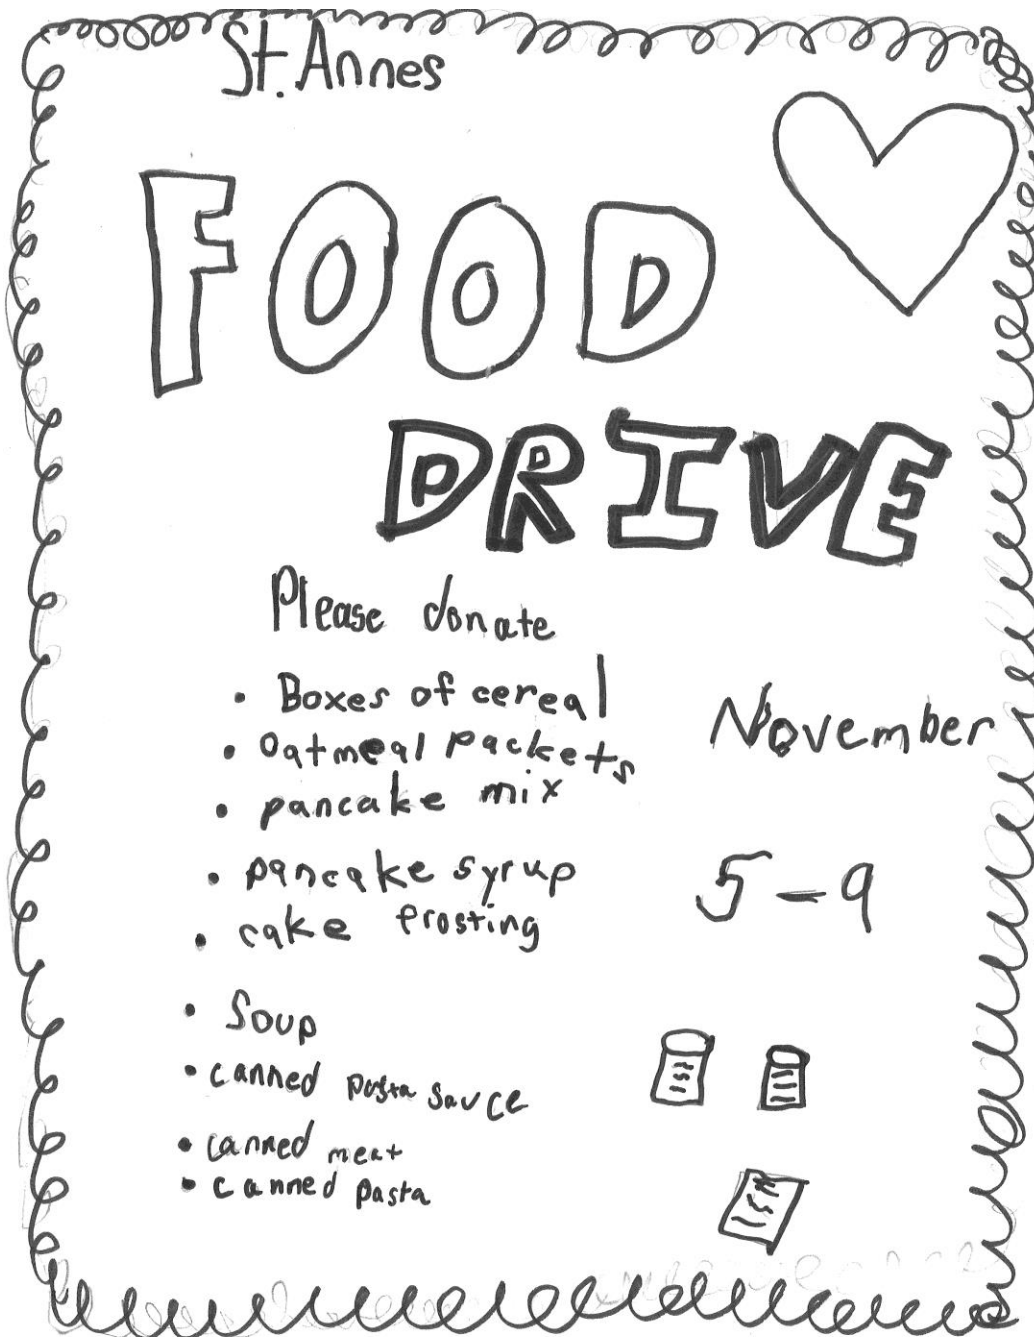 St. Annes
FOOD
DRIVE
Please donate
• Boxes of cereal
• Oatmeal packets
• pancake mix
• pancake syrup
• cake frosting
• Soup
• canned pasta sauce
• canned meat
• canned pasta
November
5 - 9